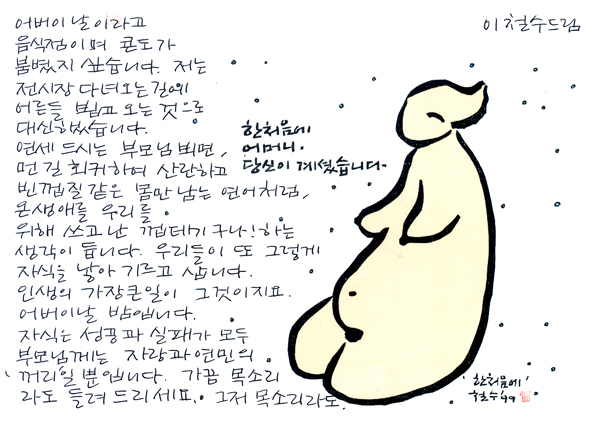 어버이날이라고
음식점이며 콘도가
붐볐지 싶습니다. 저는
전시장 다녀오는길에
어른들 뵙고 오는 것으로
대신했습니다.
연세 드시는 부모님 뵈면,
먼길 회귀하여 산란하고
빈껍질 같은 몸만 남는 연어처럼,
온생애를 우리를
위해 쓰고난 껍데기구나! 하는
생각이 듭니다. 우리들이 또 그렇게
자식을 낳아 기르고 삽니다.
인생의 가장큰일이 그것이지요.
어버이날 밤입니다.
자식은 성공과 실패가 모두
부모님께는 자랑과 연민의
꺼리일 뿐입니다. 가끔 목소리
라도 들려 드리세요. 그저 목소리라도.
이철수드림
한처음에
어머니.
당신이 계셨습니다.
'한처음에'
철수 '99